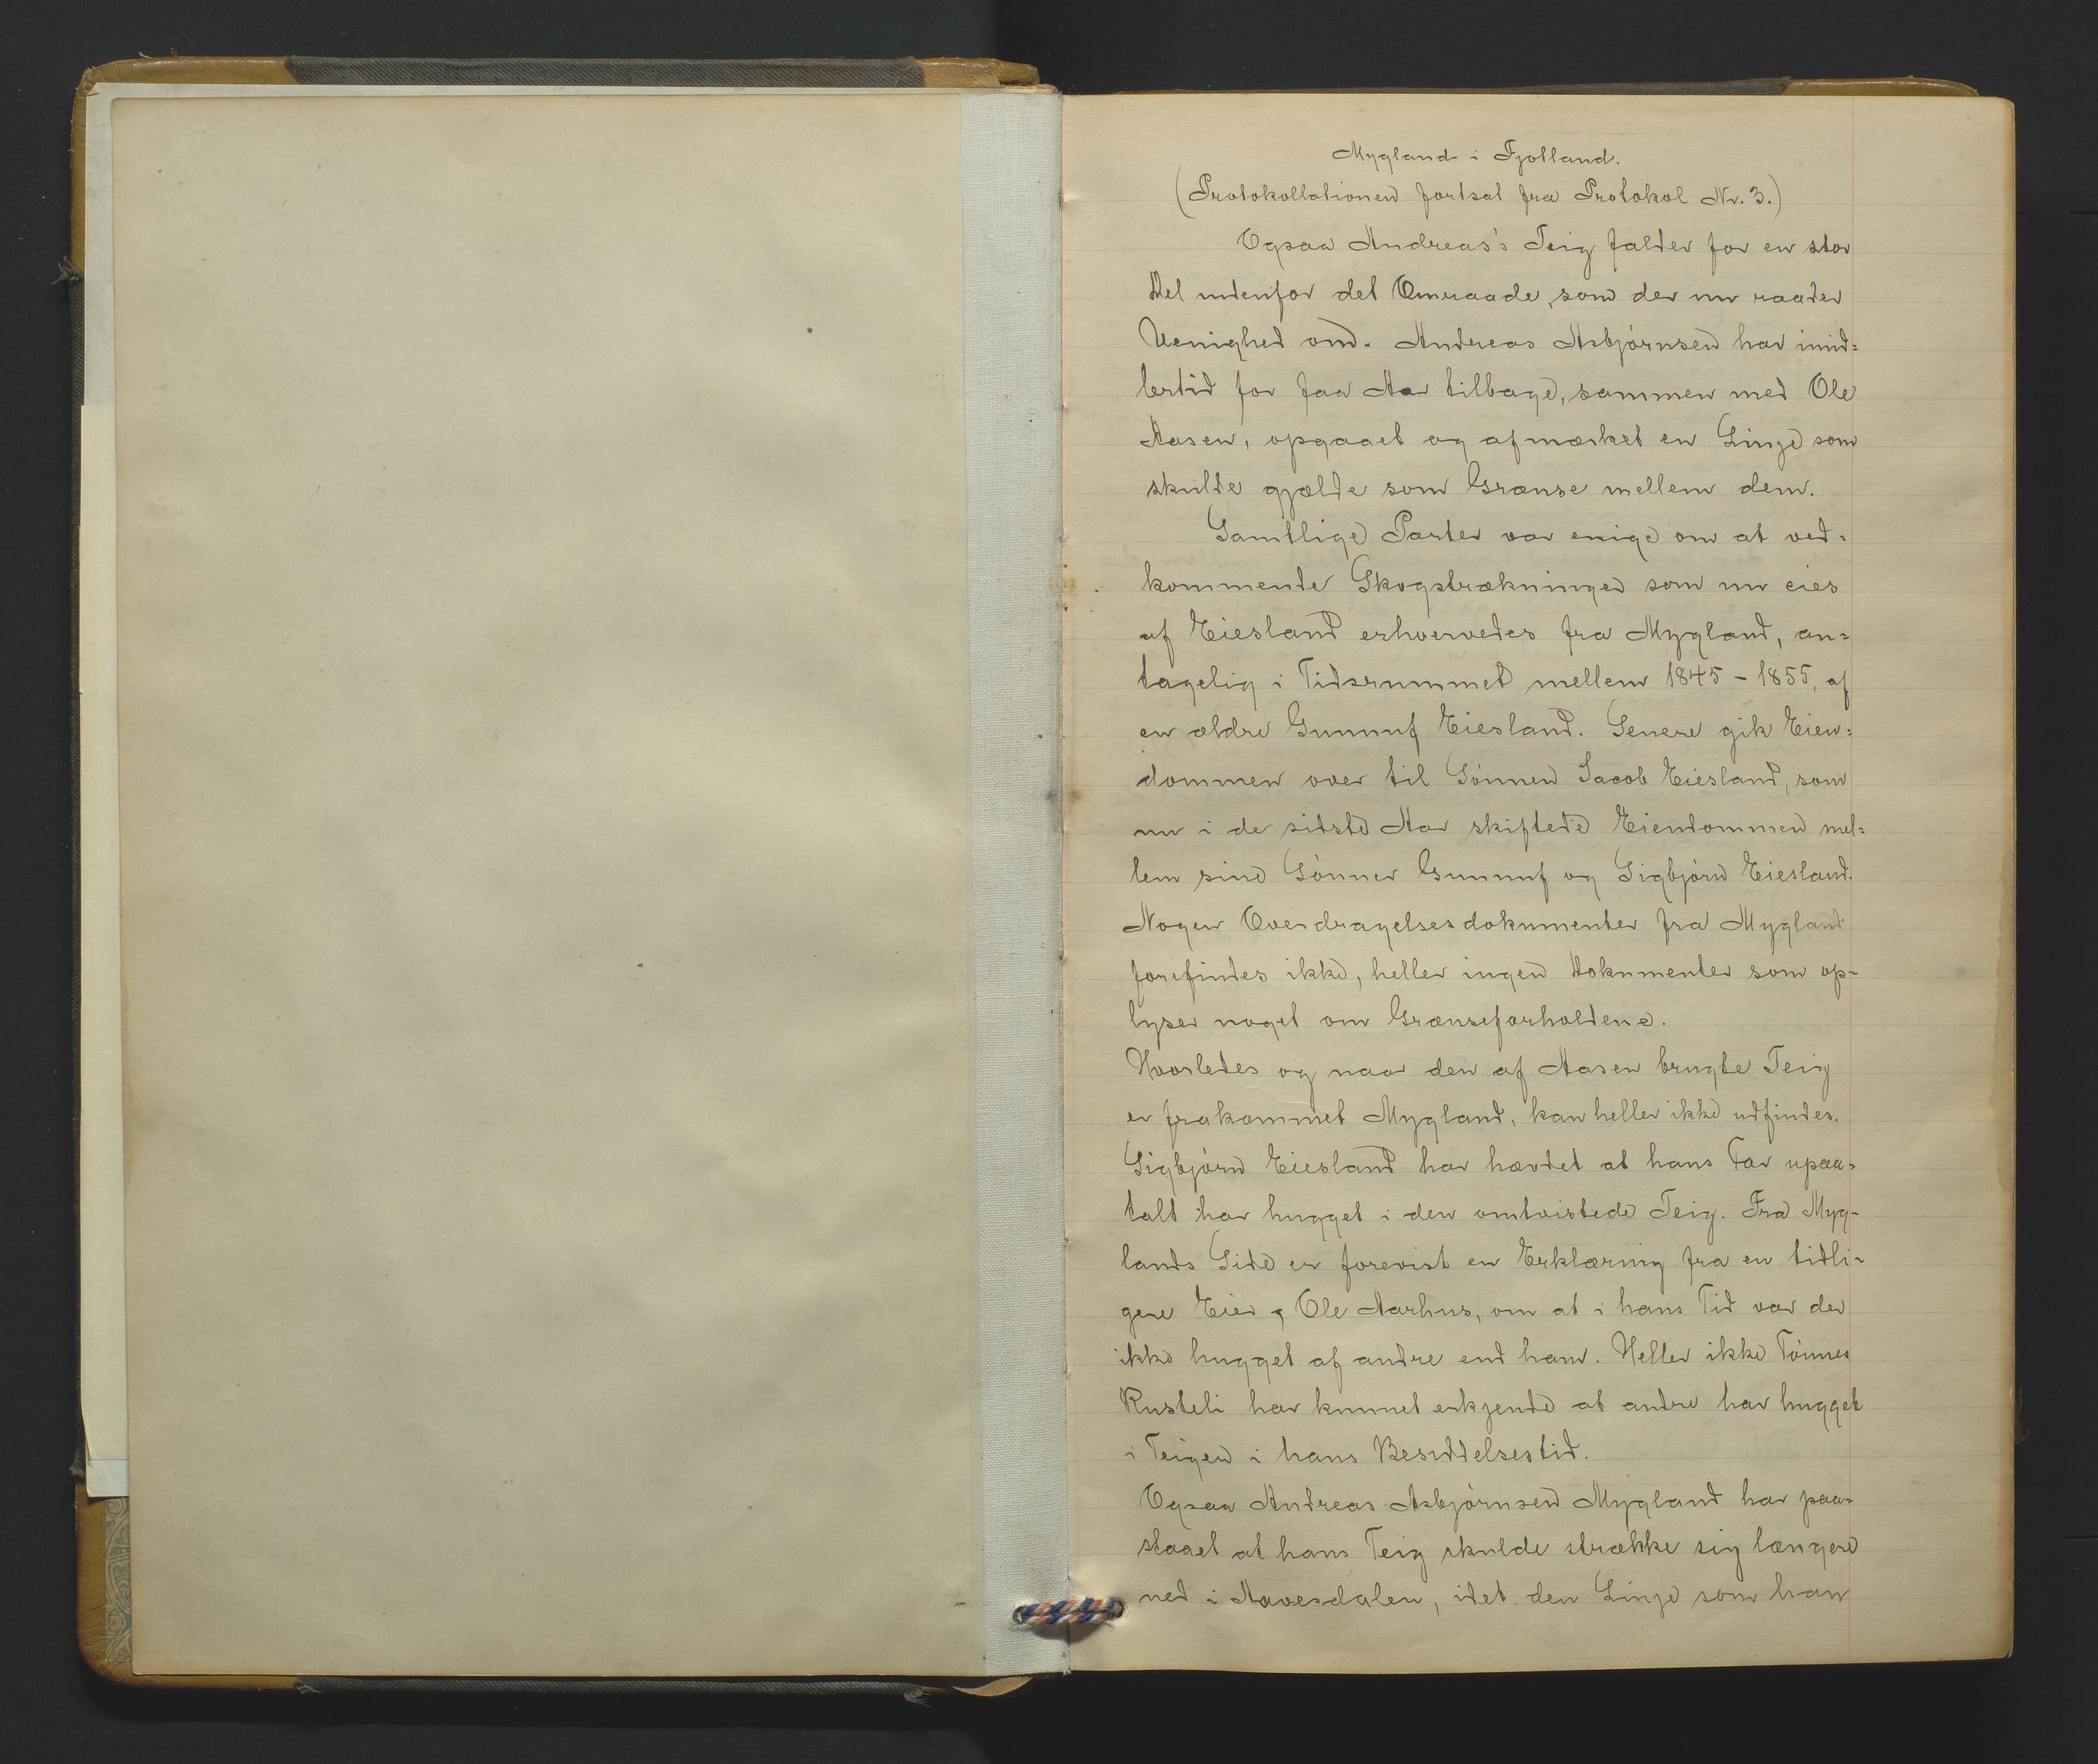 Mygland i Fjotland.
(Protokollationen fortsat fra Protokol Nr. 3.)
Ogsaa Andreas's Teig falder for en stor
Del udenfor det Omraade, som der nu raader
Uenighed om. Andreas Asbjørnsen har imid=
lertid for faa Aar tilbage, sammen med Ole
Aasen, opgaaet og afmærket en Linje som
skulde gjælde som Grænse mellem dem.
Samtlige Parter var enige om at ved=
kommende Skogstrækninger som nu eies
af Eiesland erhvervedes fra Mygland, an=
tagelig i Tidsrummet mellem 1845 - 1855, af
en ældre Gunnuf Eiesland. Senere gik Eien=
dommen over til Sønnen Jacob Eiesland, som
nu i de sidste Aar skiftede Eiendommen mel=
lem sine Sønner Gunnuf og Sigbjørn Eiesland.
Nogen Overdragelsesdokumenter fra Mygland
forefindes ikke, heller ingen Dokumenter som op-
lyser noget om Grænseforholdene.
Hvorledes og naar den af Aasen brugte Teig
er frakommet Mygland, kan heller ikke udfindes.
Sigbjørn Eiesland har hævdet at hans Far upaa-
talt har hugget i den omtvistede Teig. Fra Myg-
lands Side er forevist en Erklæring fra en tidli-
gere Eier, Ole Aarhus, om at i hans Tid var der
ikke hugget af andre end ham. Heller ikke Tønnes
Rusteli har kunnet erkjende at andre har hugget
i Teigen i hans Besiddelsestid.
Ogsaa Andreas Asbjørnsen Mygland har paa-
staaet at hans Teig skulde strække sig længere
ned i Aavesdalen, idet den Linje som han